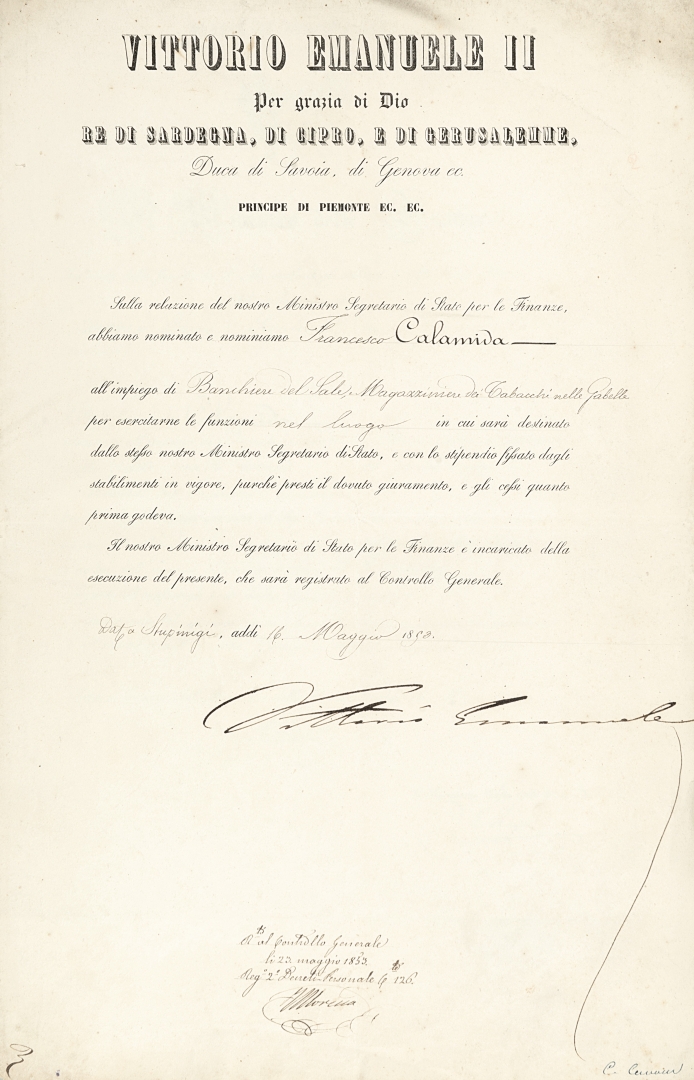 VITTORIO EMANUELE II
Per grazia di Dio
RE DI SARDEGNA, DI CIPRO, E DI GERUSALEMME,
Duca di Savoia, di Genova ec.
PRINCIPE DI PIEMONTE EC. EC.
Sulla relazione del nostro Ministro Segretario di Stato per le Finanze,
abbiamo nominato e nominiamo Francesco Calamida —
all'impiego di Banchiere del Sale, Magazziniere da Tabacchi nelle Gabelle
per esercitarne le funzioni nel luogo in cui sarà destinato
dallo stesso nostro Ministro Segretario di Stato, e con lo stipendio fissato dagli
stabilimenti in vigore, purchè presti il dovuto giuramento, e gli cessi quanto
prima godeva.
Il nostro Ministro Segretario di Stato per le Finanze è incaricato della
esecuzione del presente, che sarà registrato al Controllo Generale.
Dat a Stupinigi, addì 16. Maggio 1853.
Vittorio Emanuele
al Controllo Generale
li 23 maggio 1853
Reg° 2° Decreti Personale 126.
Moreno
C. Cavour